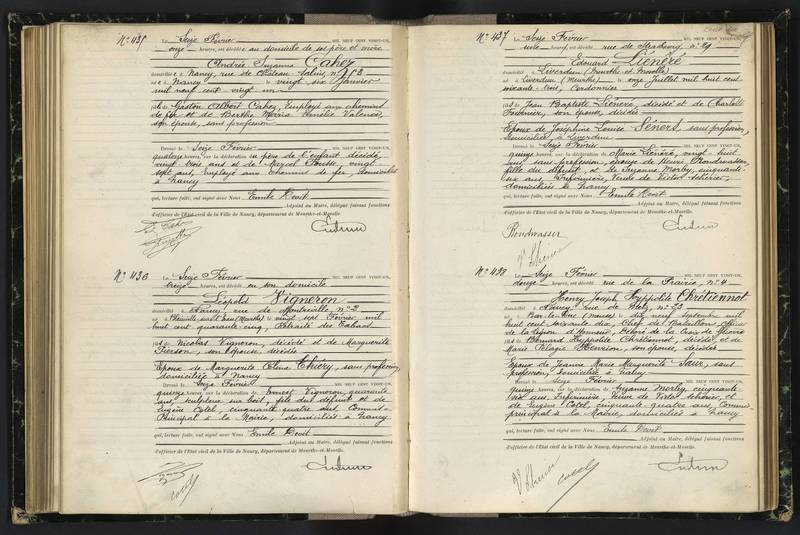 N° 435
Le Seize Février MIL NEUF CENT VINGT-UN,
onze heures, est décédée au domicile de ses père et mère
Andrée Suzanne Cahez
domiciliée à Nancy, rue de Château-Salins, n° 103
née à Nancy le vingt six Janvier
mil neuf cent vingt un
fille de Gaston Albert Cahez, Employé aux chemins
de fer et de Berthe Maria Amélie Valence,
son épouse, sans profession
Dressé le Seize Février
quatorze heures, sur la déclaration du père de l'enfant décédé,
vingt trois ans et de Marcel
sept ans, employé aux chemins de fer, domiciliés
à Nancy
qui, lecture faite, ont signé avec Nous Emile Hovit
Adjoint au Maire, délégué faisant fonctions
d'officier de l'Etat civil de la Ville de Nancy, département de Meurthe-et-Moselle.
N° 436
Le Seize Février MIL NEUF CENT VINGT-UN,
treize heures, est décédé en son domicile
Léopold Vigneron
domicilié à Nancy, rue de n° 2
né à le vingt sept Février mil
huit cent quarante-cinq, Retraité des Tabacs
fils de Nicolas Vigneron, décédé et de Marguerite
Pierson, son épouse, décédée
Epoux de Marguerite Thiéry, sans profession,
domiciliée à Nancy
Dressé le Seize Février
quinze heures, sur la déclaration de Ernest Vigneron, quarante
ans, sculpteur sur bois, fils du défunt et de
Eugène Cotel, cinquante quatre ans, Commis
Principal à la Mairie, domiciliés à Nancy
qui, lecture faite, ont signé avec Nous Emile Hovit
Adjoint au Maire, délégué faisant fonctions
d'officier de l'Etat civil de la Ville de Nancy, département de Meurthe-et-Moselle.
N° 437
Le Seize Février MIL NEUF CENT VINGT-UN,
heures, est décédé rue de Strasbourg n° 29
Edouard Lienéré
domicilié à Liverdun (Meurthe et Moselle)
né à Liverdun (Meurthe) le onze Juillet mil huit cent
soixante-trois, Cordonnier
fils de Jean Baptiste Lienéré, décédé et de Charlotte
Fournier, son épouse, décédée
Epoux de Joséphine Louise Sénert, sans profession,
domiciliée à Liverdun
Dressé le Seize Février
quinze heures, sur la déclaration de Marie Lienéré, vingt-huit
ans, sans profession, épouse de Henri Rondwasser,
fille du défunt, et de Suzanne Morley, cinquante-
six ans, Infirmière, Veuve de Victor
domiciliées à Nancy
qui, lecture faite, ont signé avec Nous Emile Hovit
Adjoint au Maire, délégué faisant fonctions
d'officier de l'Etat civil de la Ville de Nancy, département de Meurthe-et-Moselle.
Rondwasser
N° 438
Le Seize Février MIL NEUF CENT VINGT-UN,
douze heures, est décédé rue de la Prairie, n° 4
Henry Joseph Hyppolite Chrétiennot
domicilié à Nancy, rue de Metz, n° 53
né à Bar-le-Duc (Meuse) le dix neuf septembre mil
huit cent soixante-dix, Chef de Bataillon, officier
de la Légion d'Honneur, Décoré de la Croix de Guerre
fils de Bernard Hyppolite Chrétiennot, décédé et de
Marie Pélagie Henrion, son épouse, décédée
Epoux de Jeanne Marie Marguerite Saur, sans
profession, domiciliée à Nancy
Dressé le Seize Février
quinze heures, sur la déclaration de Suzanne Morley, cinquante
six ans, Infirmière, Veuve de Victor et
de Eugène Cotel, cinquante-quatre ans, Commis
principal à la Mairie, domiciliés à Nancy
qui, lecture faite, ont signé avec Nous Emile Hovit
Adjoint au Maire, délégué faisant fonctions
d'officier de l'Etat civil de la Ville de Nancy, département de Meurthe-et-Moselle.